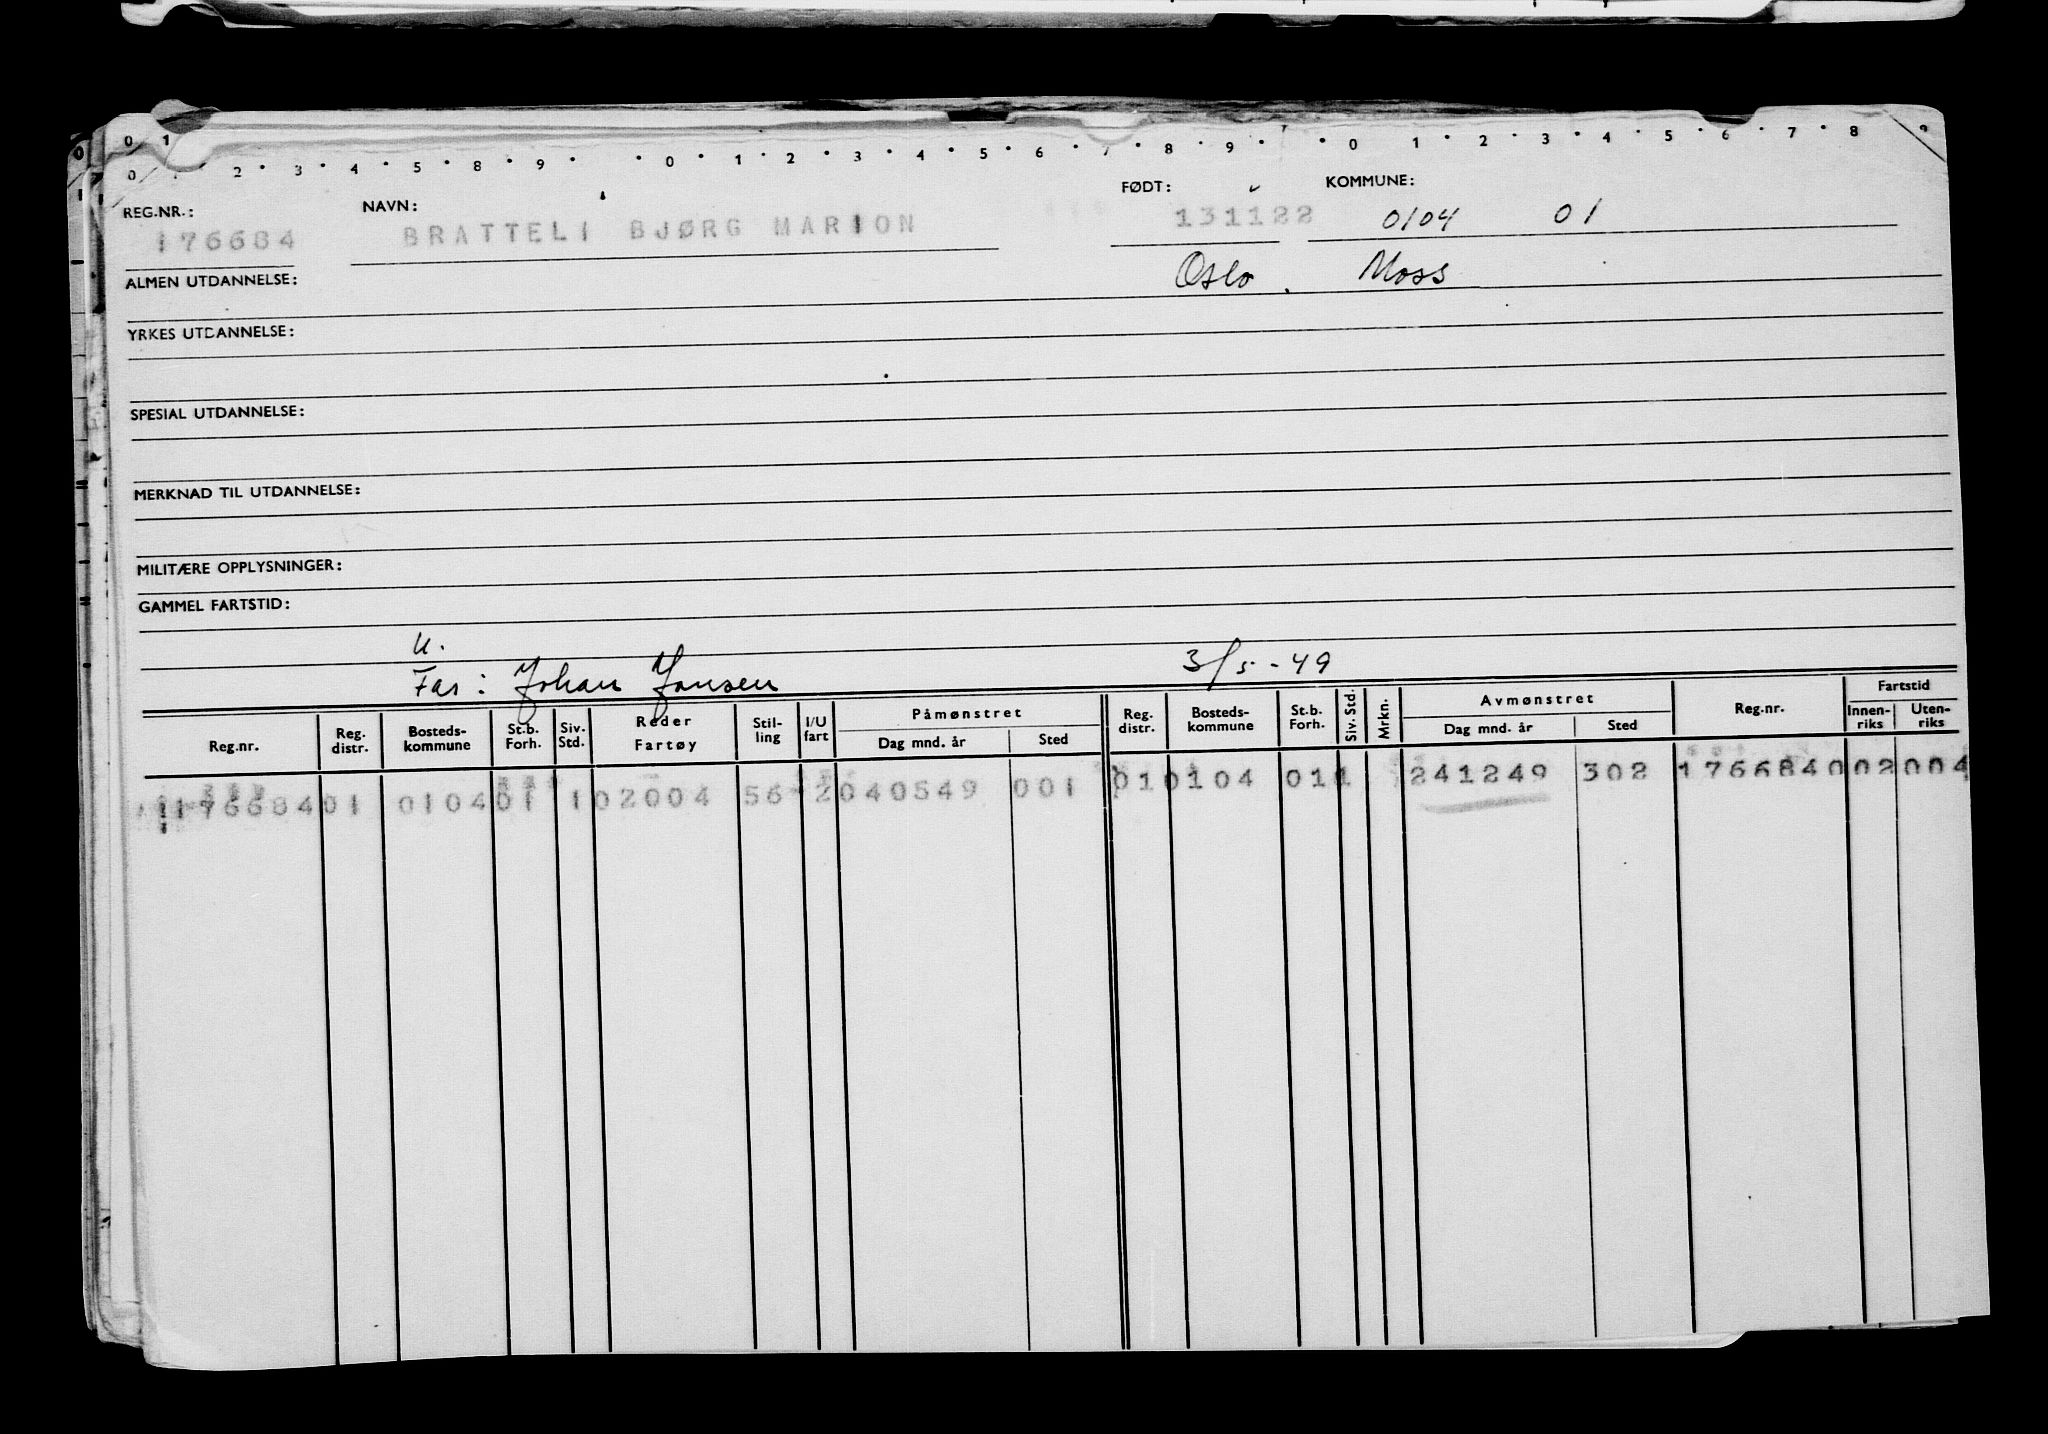 0 1
0 2 3 4 5 8 9 0 1 2 3 4 5 6 7 8 9 0 1 2 3 4 5 6 7 8 9
REG.NR.: NAVN: FØDT: KOMMUNE:
176684 BRATTELI BJØRG MARION 131122 0104 01
ALMEN UTDANNELSE: Oslo. Moss
YRKES UTDANNELSE:
SPESIAL UTDANNELSE:
MERKNAD TIL UTDANNELSE:
MILITÆRE OPPLYSNINGER:
GAMMEL FARTSTID:
U.
Far: Johan Jonsen 3/5-49
Reg.nr. Reg. distr. Bosteds-kommune St.b. Forh. Siv. Std. Reder Fartøy Stil-ling I/U fart Påmønstret Dag mnd. år Sted Reg. distr. Bosteds-kommune St.b. Forh. Siv. Std. Mrkn. Avmønstret Dag mnd. år Sted Reg.nr. Fartstid Innen-riks Uten-riks
176684 01 0104 01 1 02004 56 2 040549 001 01 0104 01 1 241249 302 176684 0002 004